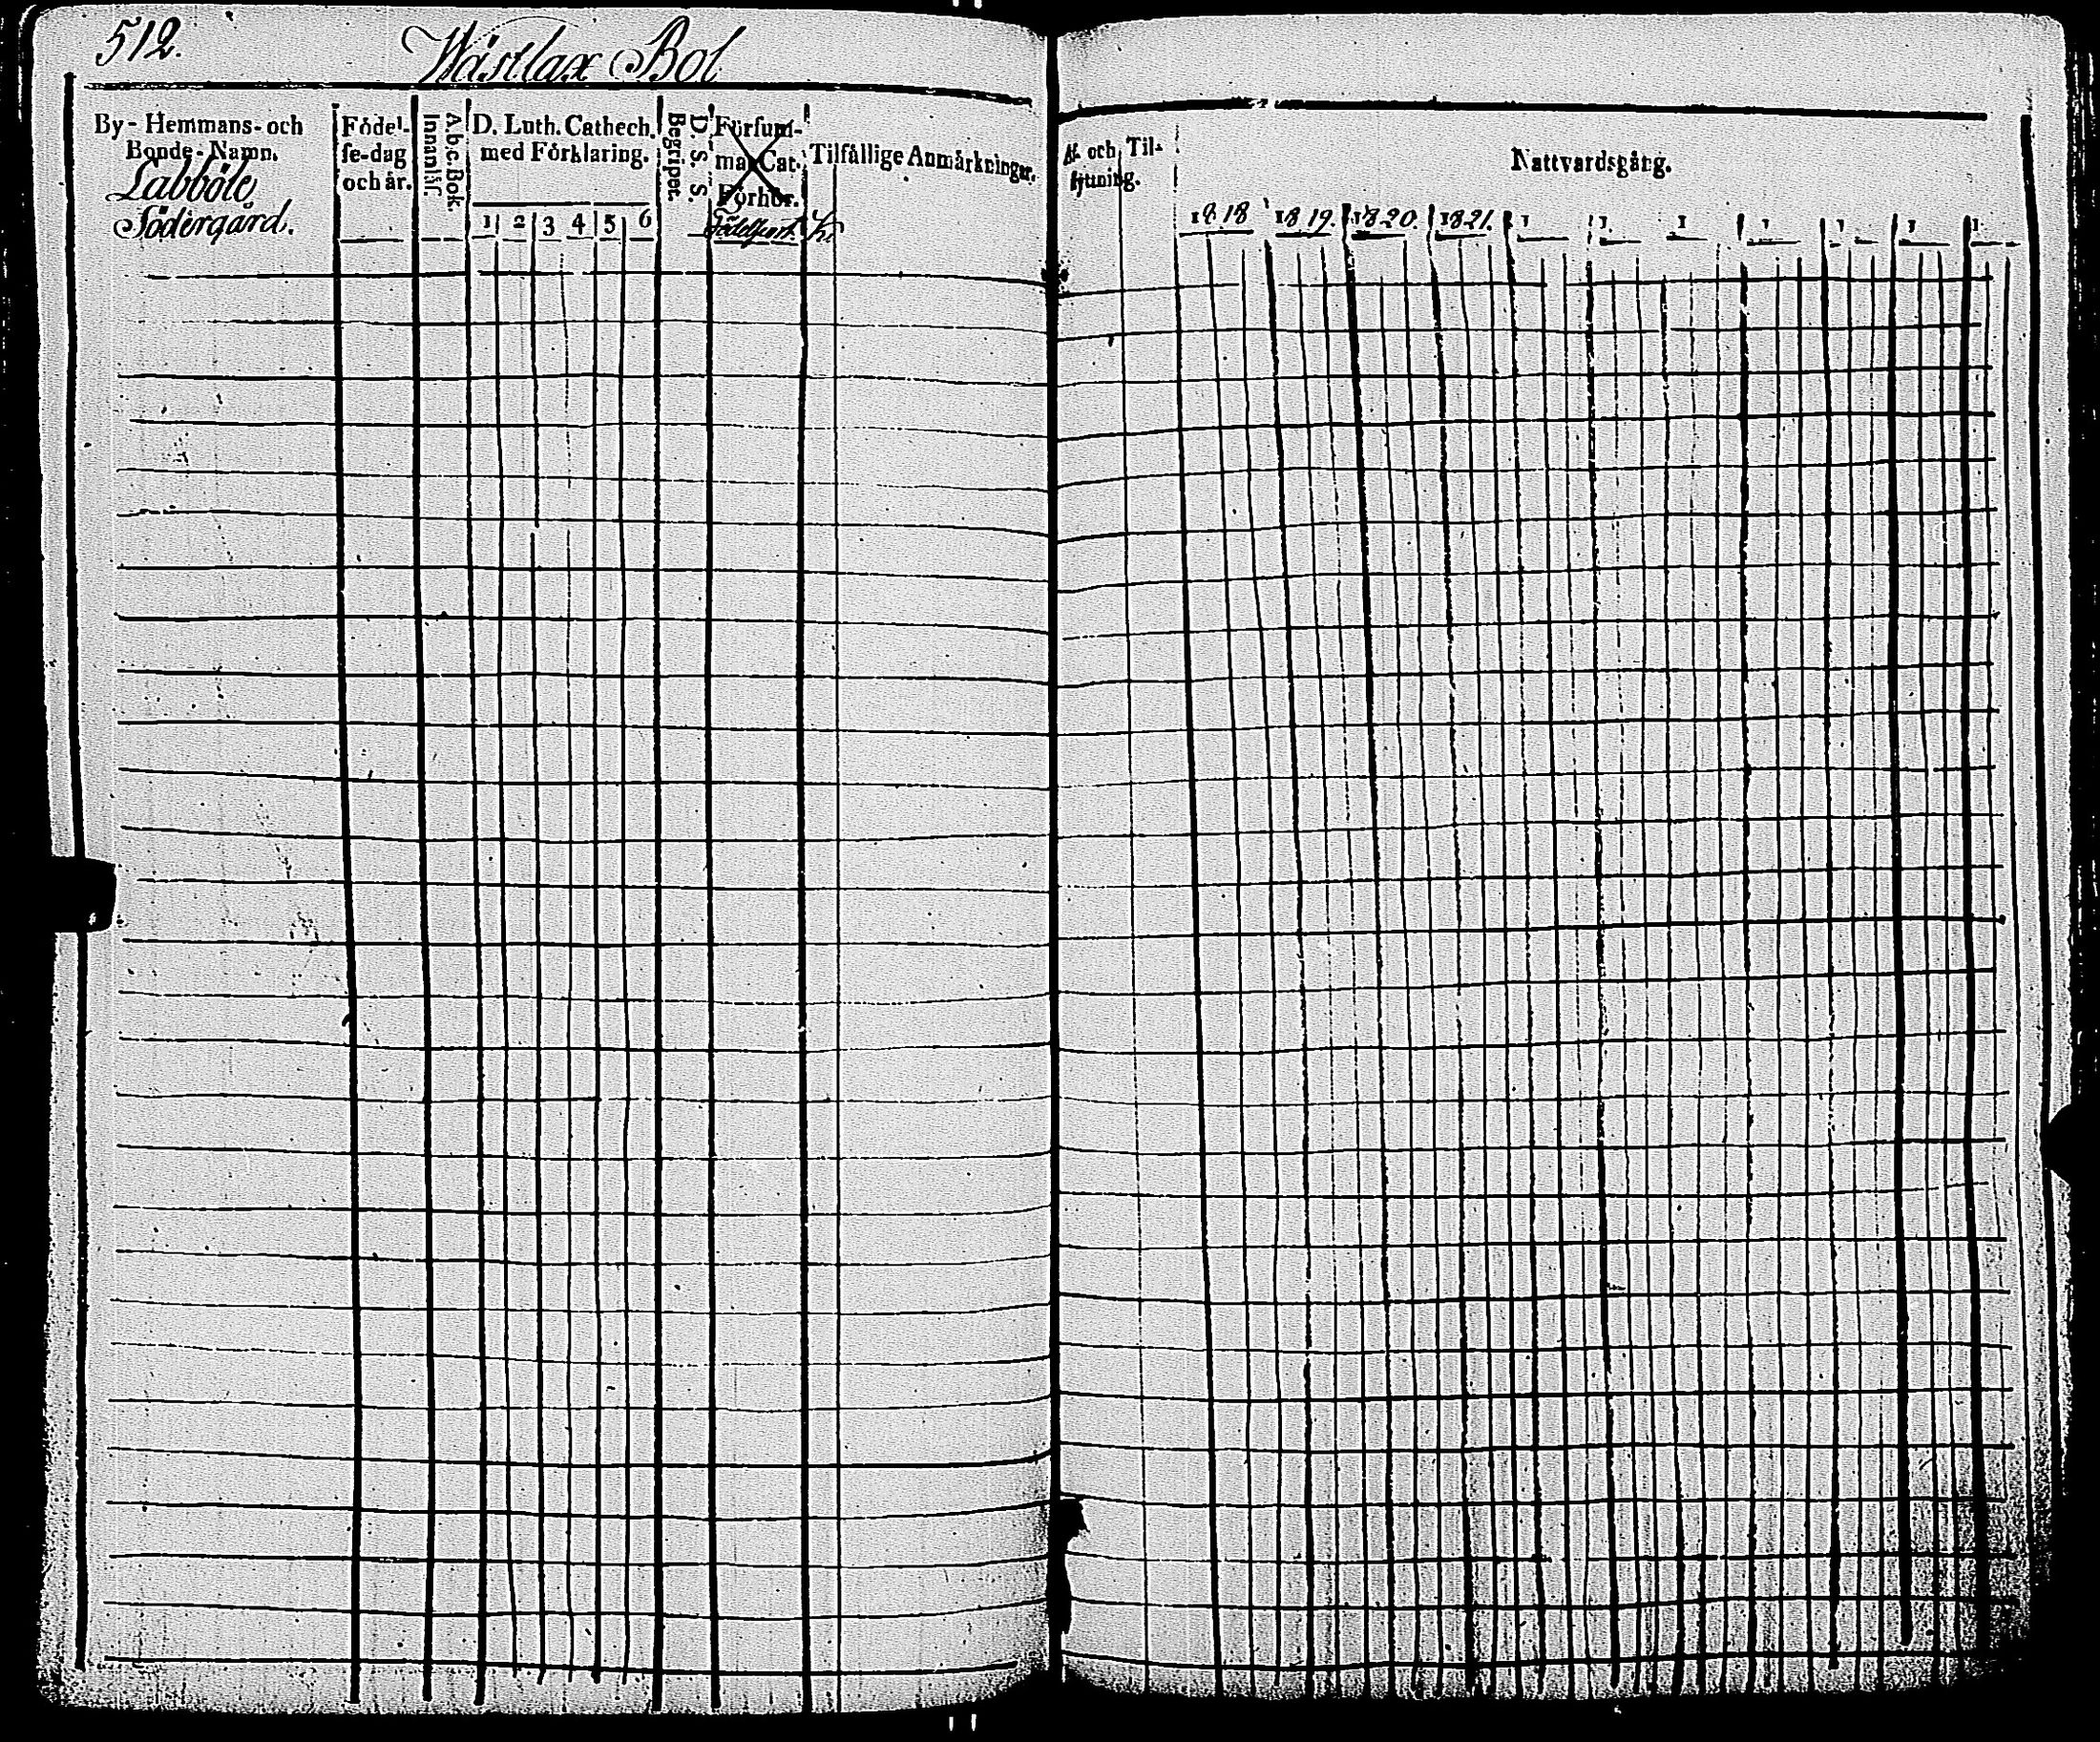 512.
Wästlax Bol
By- Hemmans- och
Bonde-Namn.
Labböle
Södergård.
Födel-
se-dag
och år.
Innanläs.
A.b.c. Bok.
D. Luth. Cathech.
med Förklaring.
1 2 3 4 5 6
Begripet.
D. S. S.
Försum-
ma Cat.
Förhör.
Födelseort.
Tilfällige Anmärkningar.
Af- och Til-
flyttning.
Nattvardsgång.
1818 1819. 1820. 1821. 1 1. 1 1 1 1 1